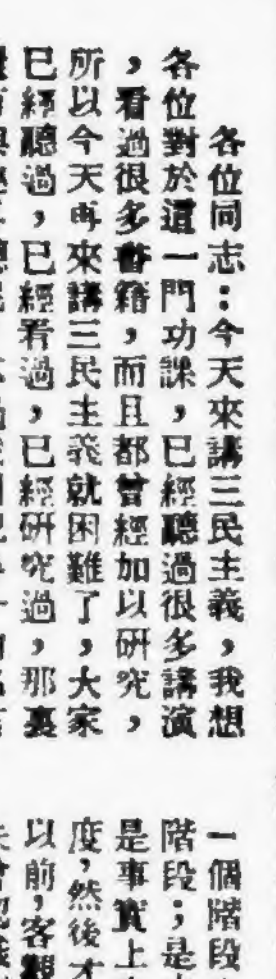 各位同志：今天來講三民主義，我想
各位對於這一門功課，已經聽過很多講演
，看過很多書籍，而且都曾經加以研究，
所以今天再來講三民主義就困難了，大家
已經聽過，已經看過，已經研究過，那裏
一個階段
階段；是
是事實上
度，然後才
以前，客觀